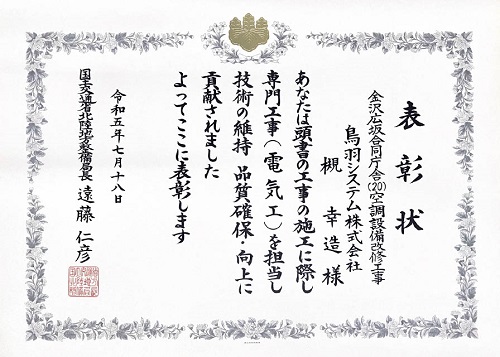 表彰状
金沢広坂合同庁舎(20)空調設備改修工事
鳥羽システム株式会社
槻 幸造 様
あなたは頭書の工事の施工に際し
専門工事(電気工)を担当し
技術の維持 品質確保・向上に
貢献されました
よってここに表彰します
令和五年七月十八日
国土交通省北陸地方整備局長 遠藤 仁彦